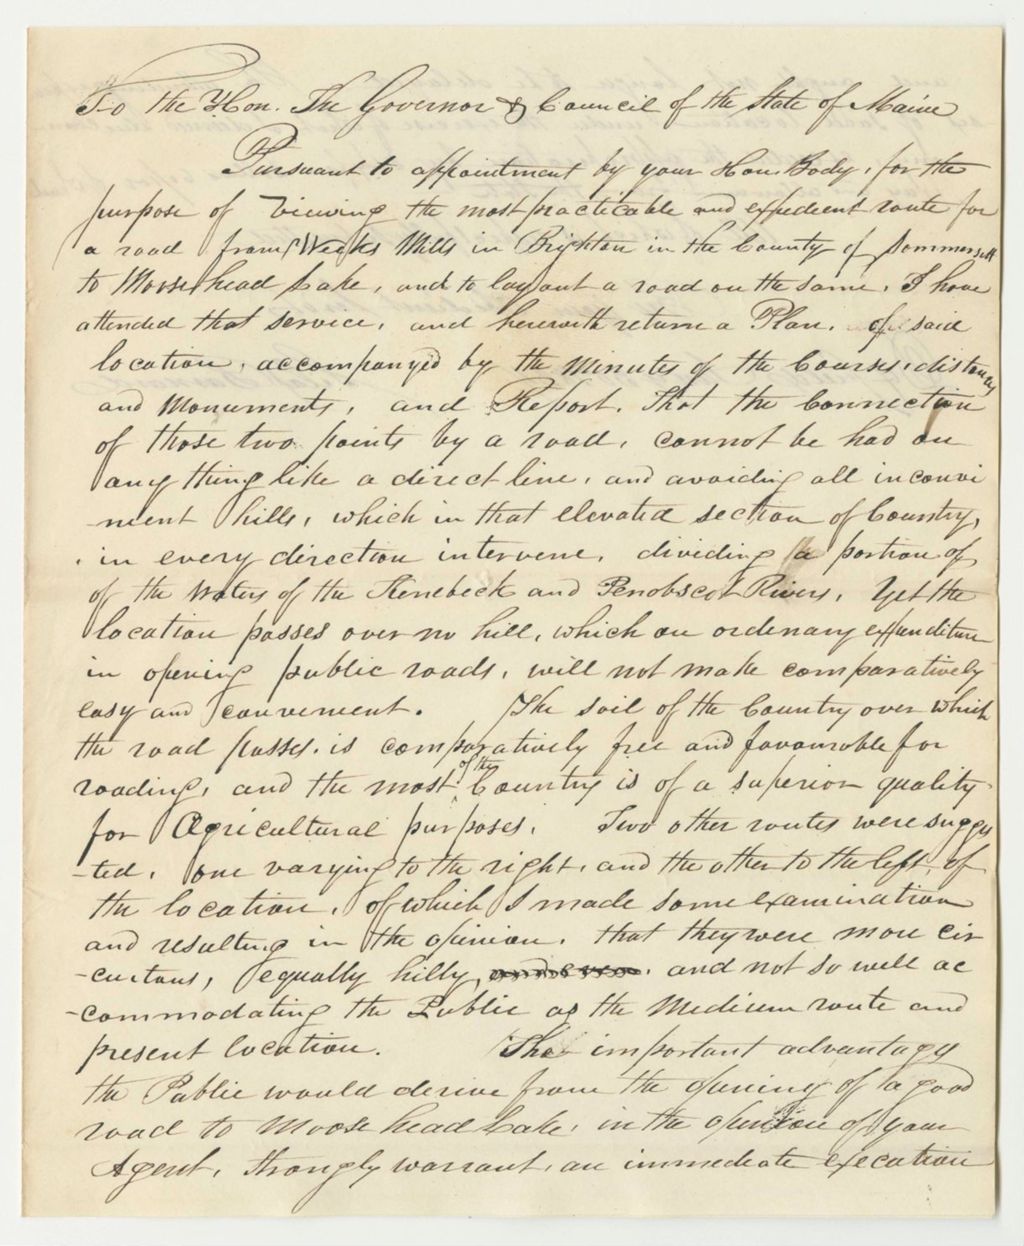 To the Hon. The Governor & Council of the State of Maine
Pursuant to appointment by your Hon. Body, for the
purpose of viewing the most practicable and expedient route for
a road from Weeks Mills in Brighton in the County of Sommersett
to Moose head Lake, and to lay out a road on the same, I have
attended that service, and herewith return a Plan, of said
location, accompanyed by the Minutes of the Courses, distances
and Monuments, and Report, That the Connection
of those two points by a road, cannot be had on
any thing like a direct line, and avoiding all inconvi
-nient hills, which in that elevated section of Country,
in every direction intervene, dividing a portion of
of the Waters of the Kenebeck and Penobscot Rivers, Yet the
location passes over no hill, which an ordenary expenditure
in opening public roads, will not make comparatively
easy and convenient. The soil of the Country over which
the road passes, is comparatively free and favourable for
roading, and the most of the Country is of a superior quality
for Agricultural purposes. Two other routes were sugges
-ted, one varying to the right, and the other to the left, of
the location, of which I made some examination
and resulting in the opinion, that they were more cir
-cuitous, equally hilly, and not so well ac
-commodating the Public as the Medium route and
present location. The important advantages
the Public would derive from the opening of a good
road to Moose head Lake, in the opinion of your
Agent, strongly warrant, an immediate execution